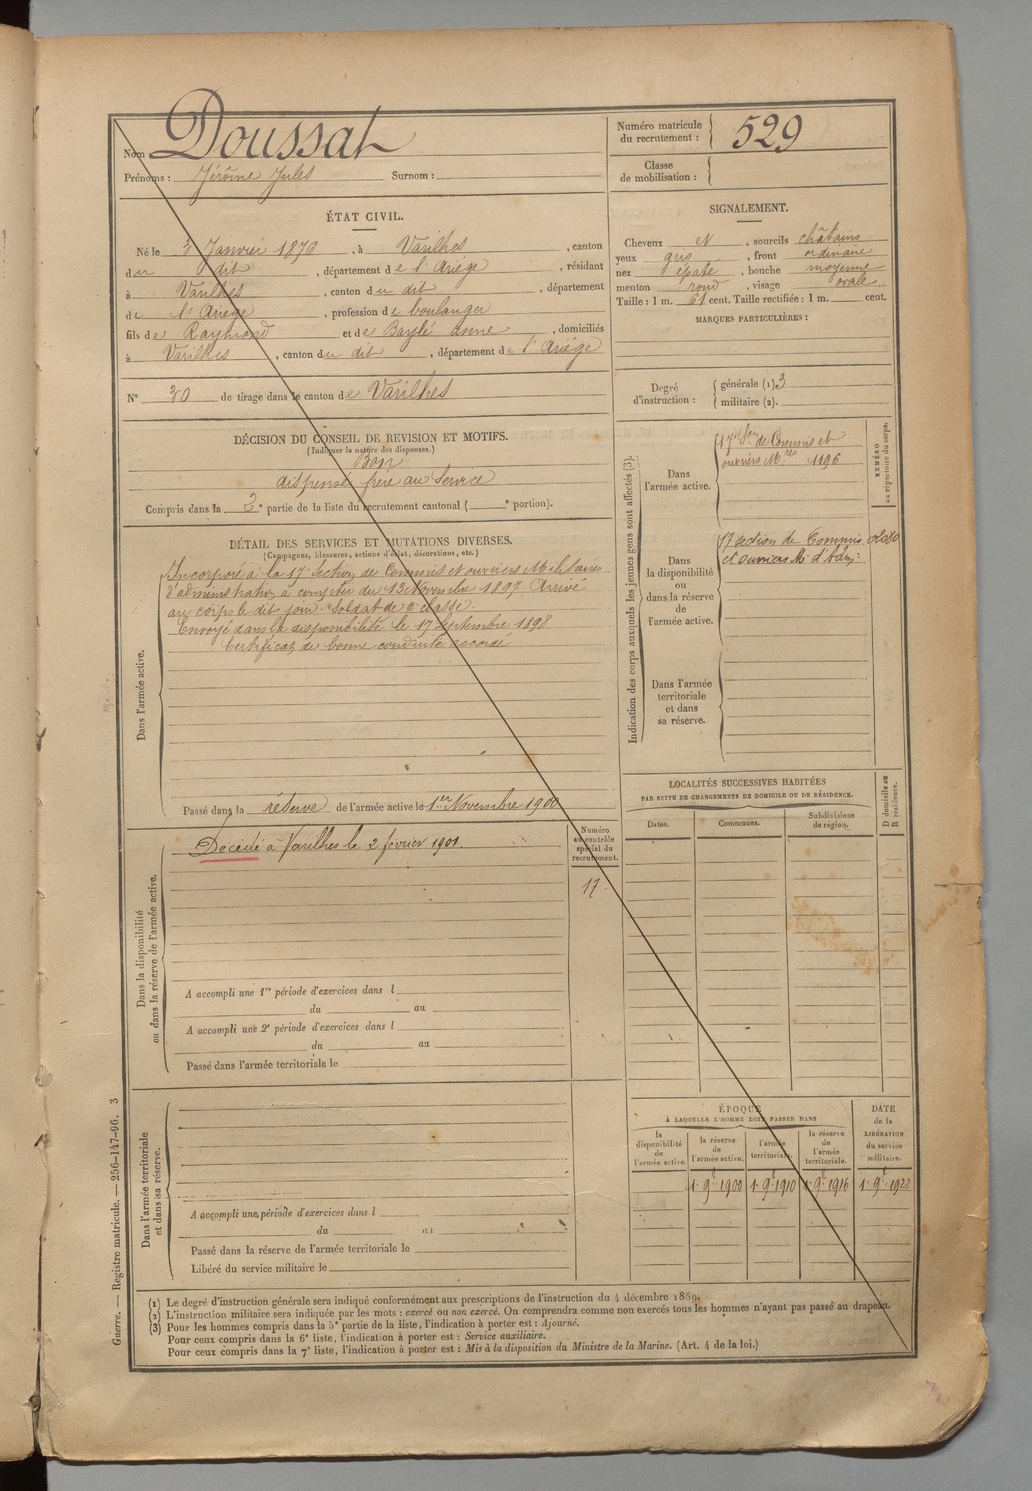 Nom Doussat
Prénoms : Jérôme Jules Surnom :
Numéro matricule du recrutement : 529
Classe de mobilisation :
ÉTAT CIVIL.
Né le 3 Janvier 1876, à Varilhes, canton
du dit, département de l'Ariège, résidant
à Varilhes, canton du dit, département
de l'Ariège, profession de boulanger
fils de Raymond et de Baylé Anne, domiciliés
à Varilhes, canton du dit, département de l'Ariège
N° 30 de tirage dans le canton de Varilhes
SIGNALEMENT.
Cheveux et, sourcils châtains
yeux gris, front ordinaire
nez épaté, bouche moyenne
menton rond, visage ovale
Taille : 1 m. 61 cent. Taille rectifiée : 1 m. cent.
MARQUES PARTICULIÈRES :
Degré d'instruction : générale (1) 3
militaire (2).
DÉCISION DU CONSEIL DE REVISION ET MOTIFS.
(Indiquer la nature des dispenses.)
Bon
dispensé frère au service
Compris dans la 2e partie de la liste du recrutement cantonal ( e portion).
DÉTAIL DES SERVICES ET MUTATIONS DIVERSES.
(Campagnes, blessures, actions d'éclat, décorations, etc.)
Dans l'armée active.
Incorporé à la 17e Section de Commis et ouvriers Militaires
d'administration à compter du 13 Novembre 1897 Arrivé
au corps le dit jour. Soldat de 2e classe.
Envoyé dans la disponibilité le 17 Septembre 1898
Certificat de bonne conduite accordé
Passé dans la réserve de l'armée active le 1er Novembre 1900
Indication des corps auxquels les jeunes gens sont affectés (3).
NUMÉRO au répertoire du corps.
Dans l'armée active.
17e Son de Commis et
ouvriers Mres 1196
Dans la disponibilité ou dans la réserve de l'armée active.
17 section de Commis
et ouvriers Mt d'Adm:
Dans l'armée territoriale et dans sa réserve.
LOCALITÉS SUCCESSIVES HABITÉES
PAR SUITE DE CHANGEMENTS DE DOMICILE OU DE RÉSIDENCE.
Dates. Communes. Subdivisions de région. D domicile ou R résidence.
Dans la disponibilité ou dans la réserve de l'armée active.
Décédé à Varilhes le 2 février 1901.
Numéro au contrôle spécial du recrutement.
17
A accompli une 1re période d'exercices dans l
du au
A accompli une 2e période d'exercices dans l
du au
Passé dans l'armée territoriale le
Dans l'armée territoriale et dans sa réserve.
A accompli une période d'exercices dans l
du au
Passé dans la réserve de l'armée territoriale le
Libéré du service militaire le
ÉPOQUE
À LAQUELLE L'HOMME DOIT PASSER DANS
la disponibilité de l'armée active. la réserve de l'armée active. l'armée territoriale. la réserve de l'armée territoriale.
DATE de la LIBÉRATION du service militaire.
1 9bre 1900 1 9bre 1910 1 9bre 1916 1 9bre 1922
(1) Le degré d'instruction générale sera indiqué conformément aux prescriptions de l'instruction du 4 décembre 1889.
(2) L'instruction militaire sera indiquée par les mots : exercé ou non exercé. On comprendra comme non exercés tous les hommes n'ayant pas passé au drapeau.
(3) Pour les hommes compris dans la 5e partie de la liste, l'indication à porter est : Ajourné.
Pour ceux compris dans la 6e liste, l'indication à porter est : Service auxiliaire.
Pour ceux compris dans la 7e liste, l'indication à porter est : Mis à la disposition du Ministre de la Marine. (Art. 4 de la loi.)
Guerre. — Registre matricule. — 256-147-96. 3